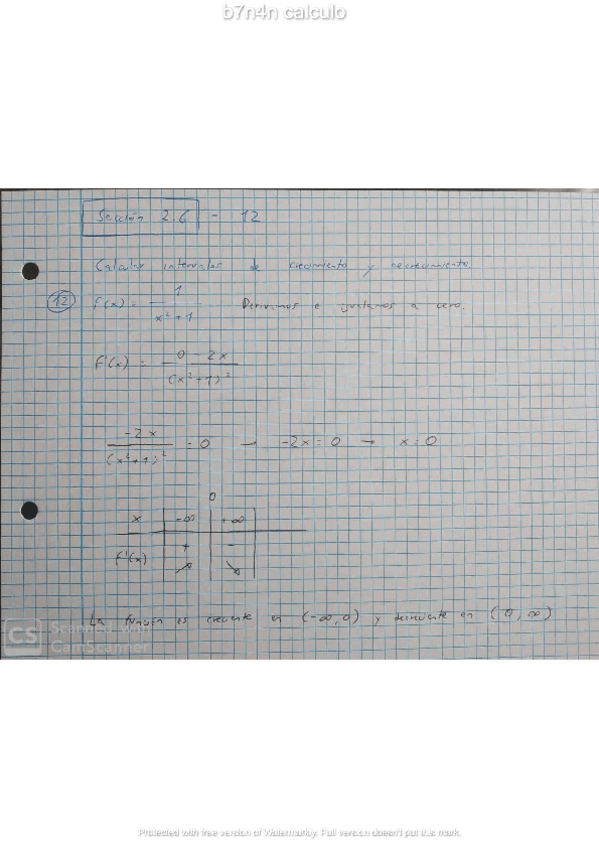 b7n4n calculo
Sección 2.6 - 12
Calcular intervalos de crecimiento y decrecimiento
12 f(x) = 1 / (x² + 1) Derivamos e igualamos a cero.
f'(x) = (0 - 2x) / (x² + 1)²
-2x / (x² + 1)² = 0 → -2x = 0 → x = 0
0
x | -∞ | +∞ |
f'(x) | + | - |
↗ ↘
La función es creciente en (-∞, 0) y decreciente en (0, ∞)
CS Scanned with
CamScanner
Protected with free version of Watermarkly. Full version doesn't put this mark.